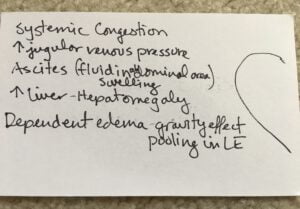 Systemic Congestion
↑ jugular venous pressure
Ascites (fluid in abdominal area)
swelling
↑ Liver - Hepatomegaly
Dependent edema - gravity effect
pooling in LE